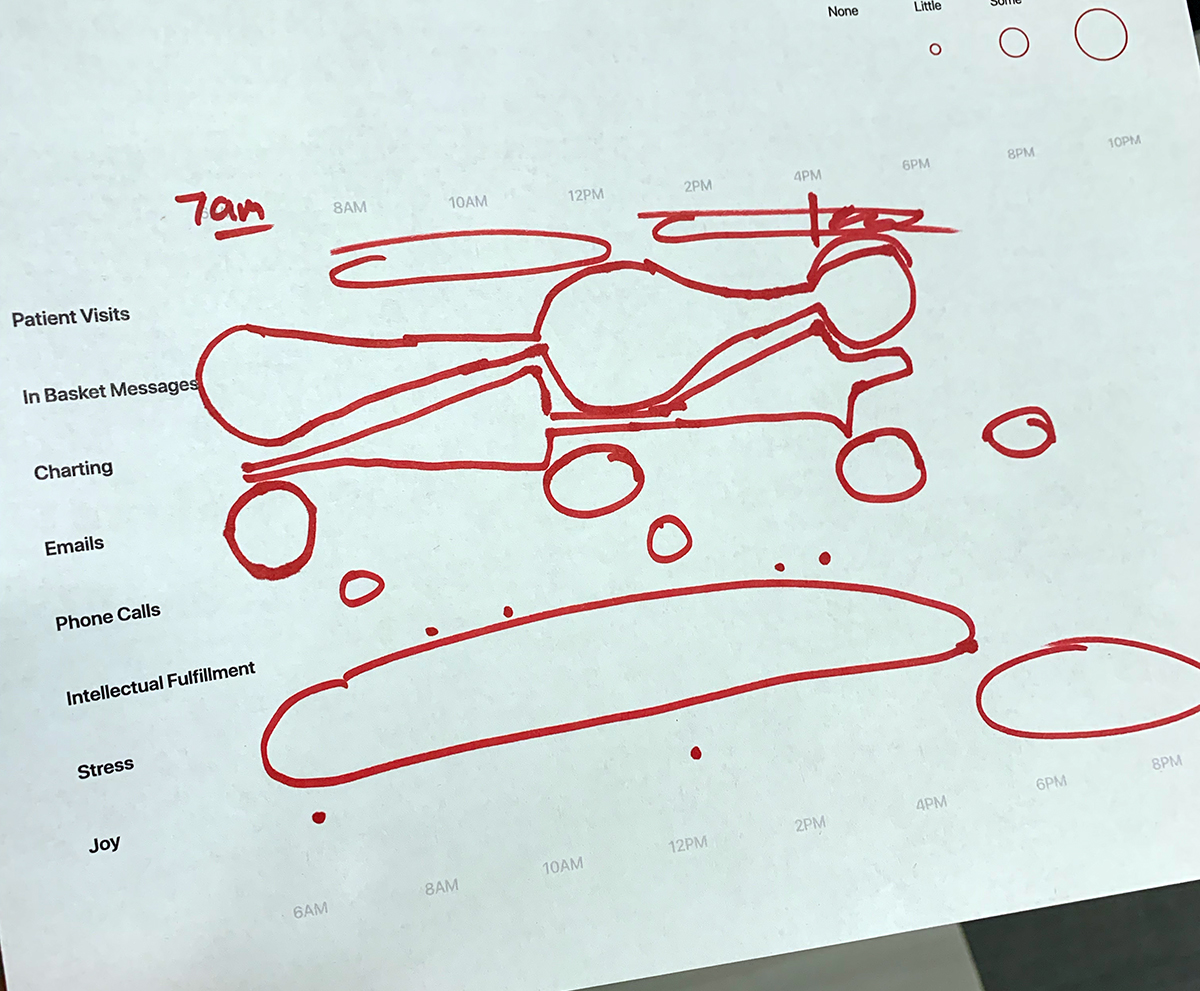 None Little Some
8AM 10AM 12PM 2PM 4PM 6PM 8PM 10PM
7am
Patient Visits
In Basket Messages
Charting
Emails
Phone Calls
Intellectual Fulfillment
Stress
Joy
6AM 8AM 10AM 12PM 2PM 4PM 6PM 8PM